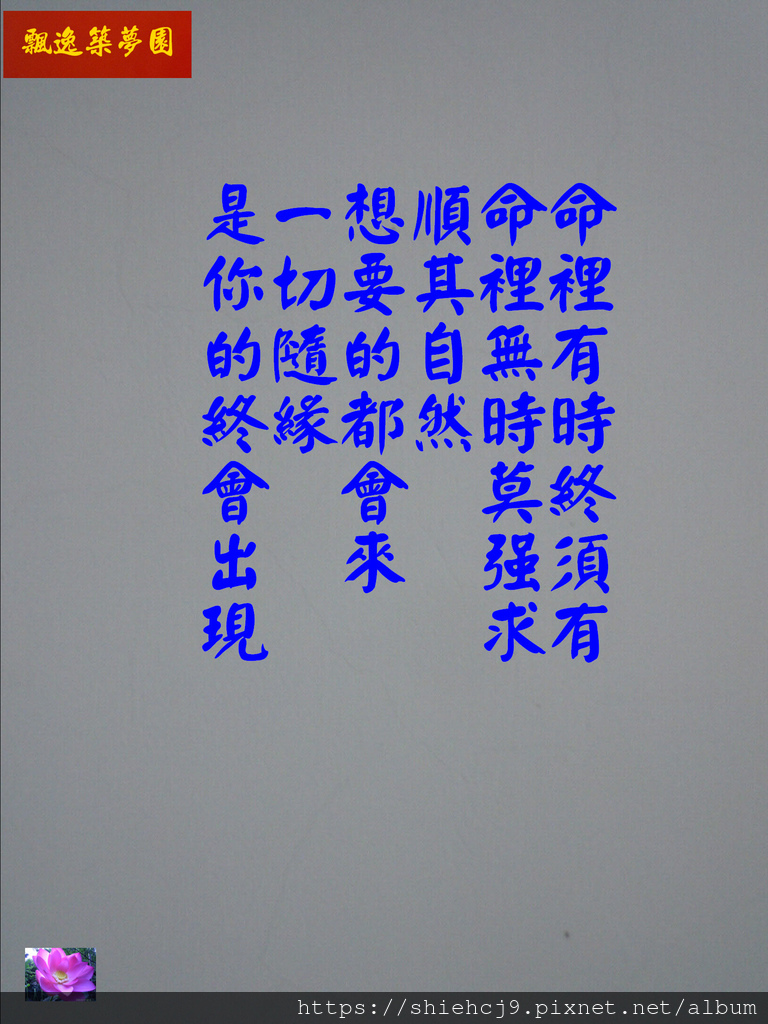 飄逸築夢園
命裡有時終須有
命裡無時莫强求
順其自然
想要的都會來
一切隨緣
是你的終會出現
https://shiehcj9.pixnet.net/album